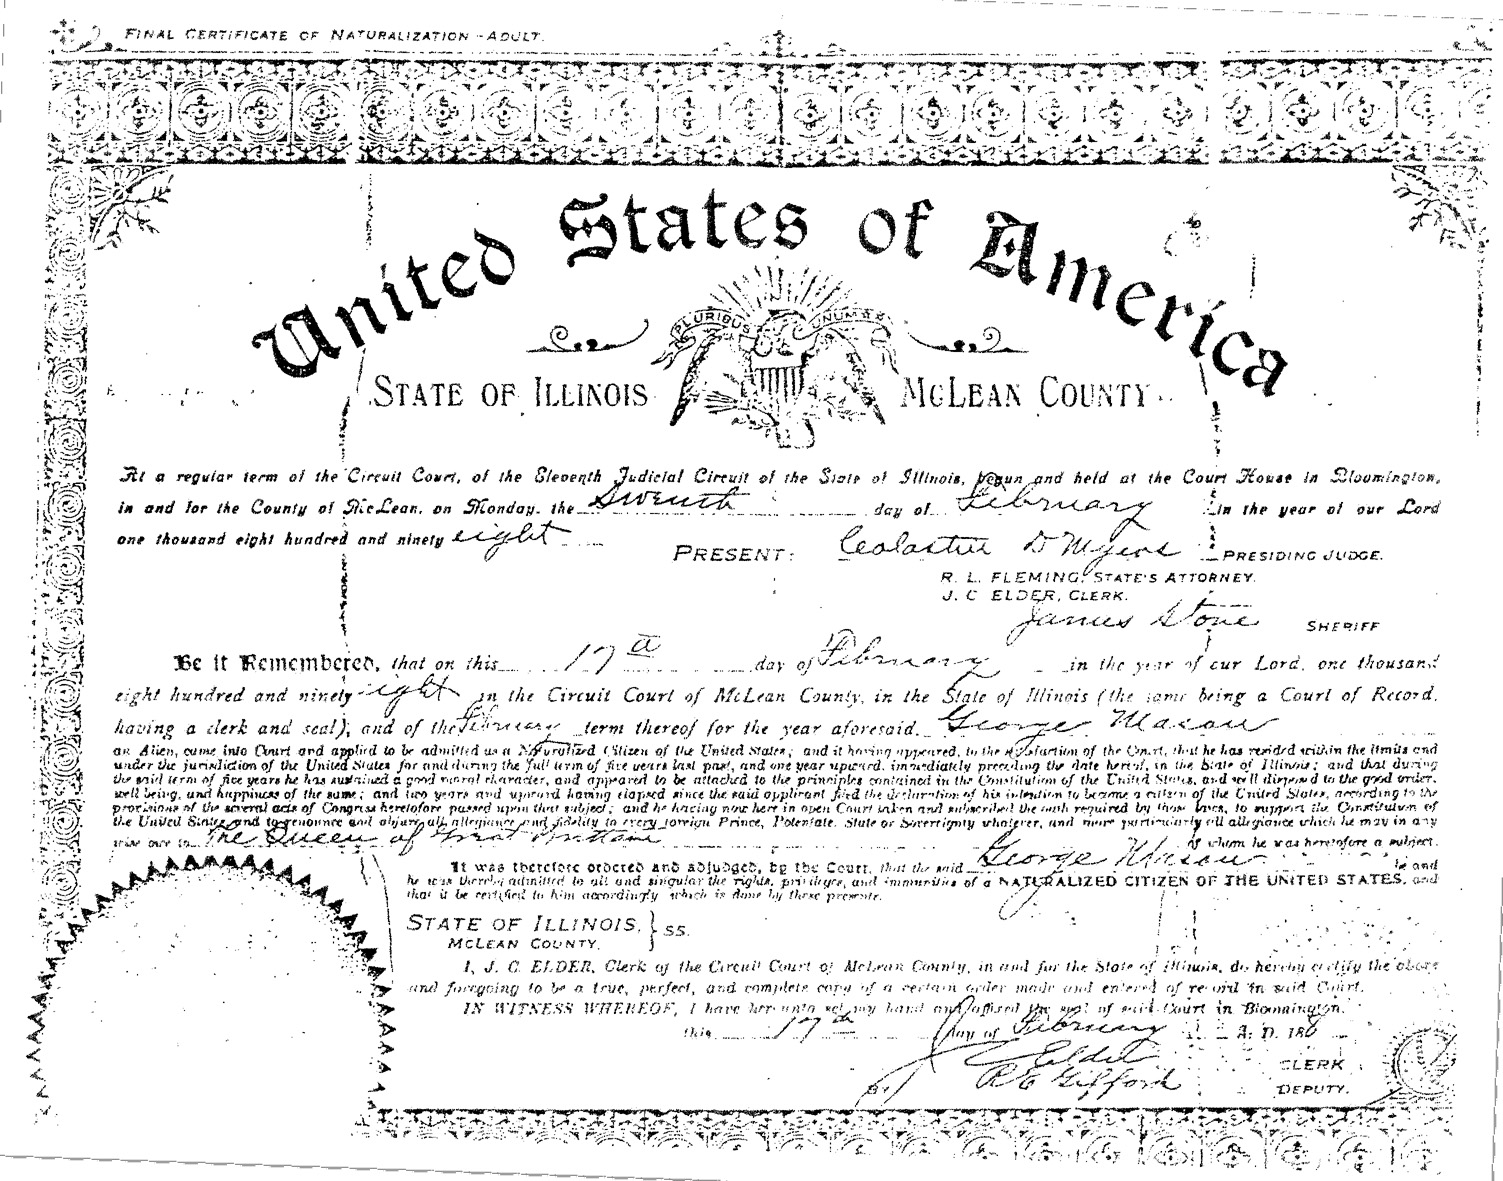 FINAL CERTIFICATE OF NATURALIZATION - ADULT.
United States of America
PLURIBUS UNUM
STATE OF ILLINOIS McLEAN COUNTY
At a regular term of the Circuit Court, of the Eleventh Judicial Circuit of the State of Illinois, begun and held at the Court House in Bloomington,
in and for the County of McLean, on Monday, the day of February in the year of our Lord
one thousand eight hundred and ninety eight
PRESENT: D Myers PRESIDING JUDGE.
R. L. FLEMING, STATE'S ATTORNEY.
J. C ELDER, CLERK.
James Stone SHERIFF
Be it Remembered, that on this 17th day of February in the year of our Lord, one thousand
eight hundred and ninety eight in the Circuit Court of McLean County, in the State of Illinois (the same being a Court of Record,
having a clerk and seal), and of the February term thereof for the year aforesaid, George Mason
an Alien, came into Court and applied to be admitted as a Naturalized Citizen of the United States; and it having appeared, to the satisfaction of the Court, that he has resided within the limits and
under the jurisdiction of the United States for and during the full term of five years last past, and one year upward, immediately preceding the date hereof, in the State of Illinois; and that during
the said term of five years he has sustained a good moral character, and appeared to be attached to the principles contained in the Constitution of the United States, and well disposed to the good order,
well being, and happiness of the same; and two years and upward having elapsed since the said applicant filed the declaration of his intention to become a citizen of the United States, according to the
provisions of the several acts of Congress heretofore passed upon that subject; and he having now here in open Court taken and subscribed the oath required by those laws, to support the Constitution of
the United States, and to renounce and abjure all allegiance and fidelity to every foreign Prince, Potentate, State or Sovereignty whatever, and more particularly all allegiance which he may in any
wise owe to The Queen of Great Brittain of whom he was heretofore a subject.
It was therefore ordered and adjudged, by the Court, that the said George Mason be and
he was thereby admitted to all and singular the rights, privileges, and immunities of a NATURALIZED CITIZEN OF THE UNITED STATES, and
that it be certified to him accordingly which is done by these presents.
STATE OF ILLINOIS, } SS.
McLEAN COUNTY.
I, J. C. ELDER, Clerk of the Circuit Court of McLean County, in and for the State of Illinois, do hereby certify the above
and foregoing to be a true, perfect, and complete copy of a certain order made and entered of record in said Court.
IN WITNESS WHEREOF, I have hereunto set my hand and affixed the seal of said Court in Bloomington,
this 17th day of February A. D. 189
J C Elder CLERK
BY R E Gifford DEPUTY.